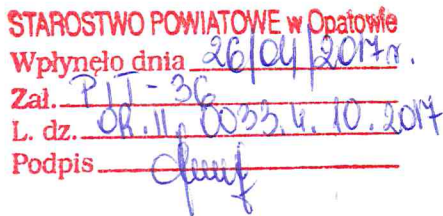 STAROSTWO POWIATOWE w Opatowie
Wpłynęło dnia 26/04/2017r.
Zał. PIT-36
L. dz. OR.II.0033.4.10.2017
Podpis